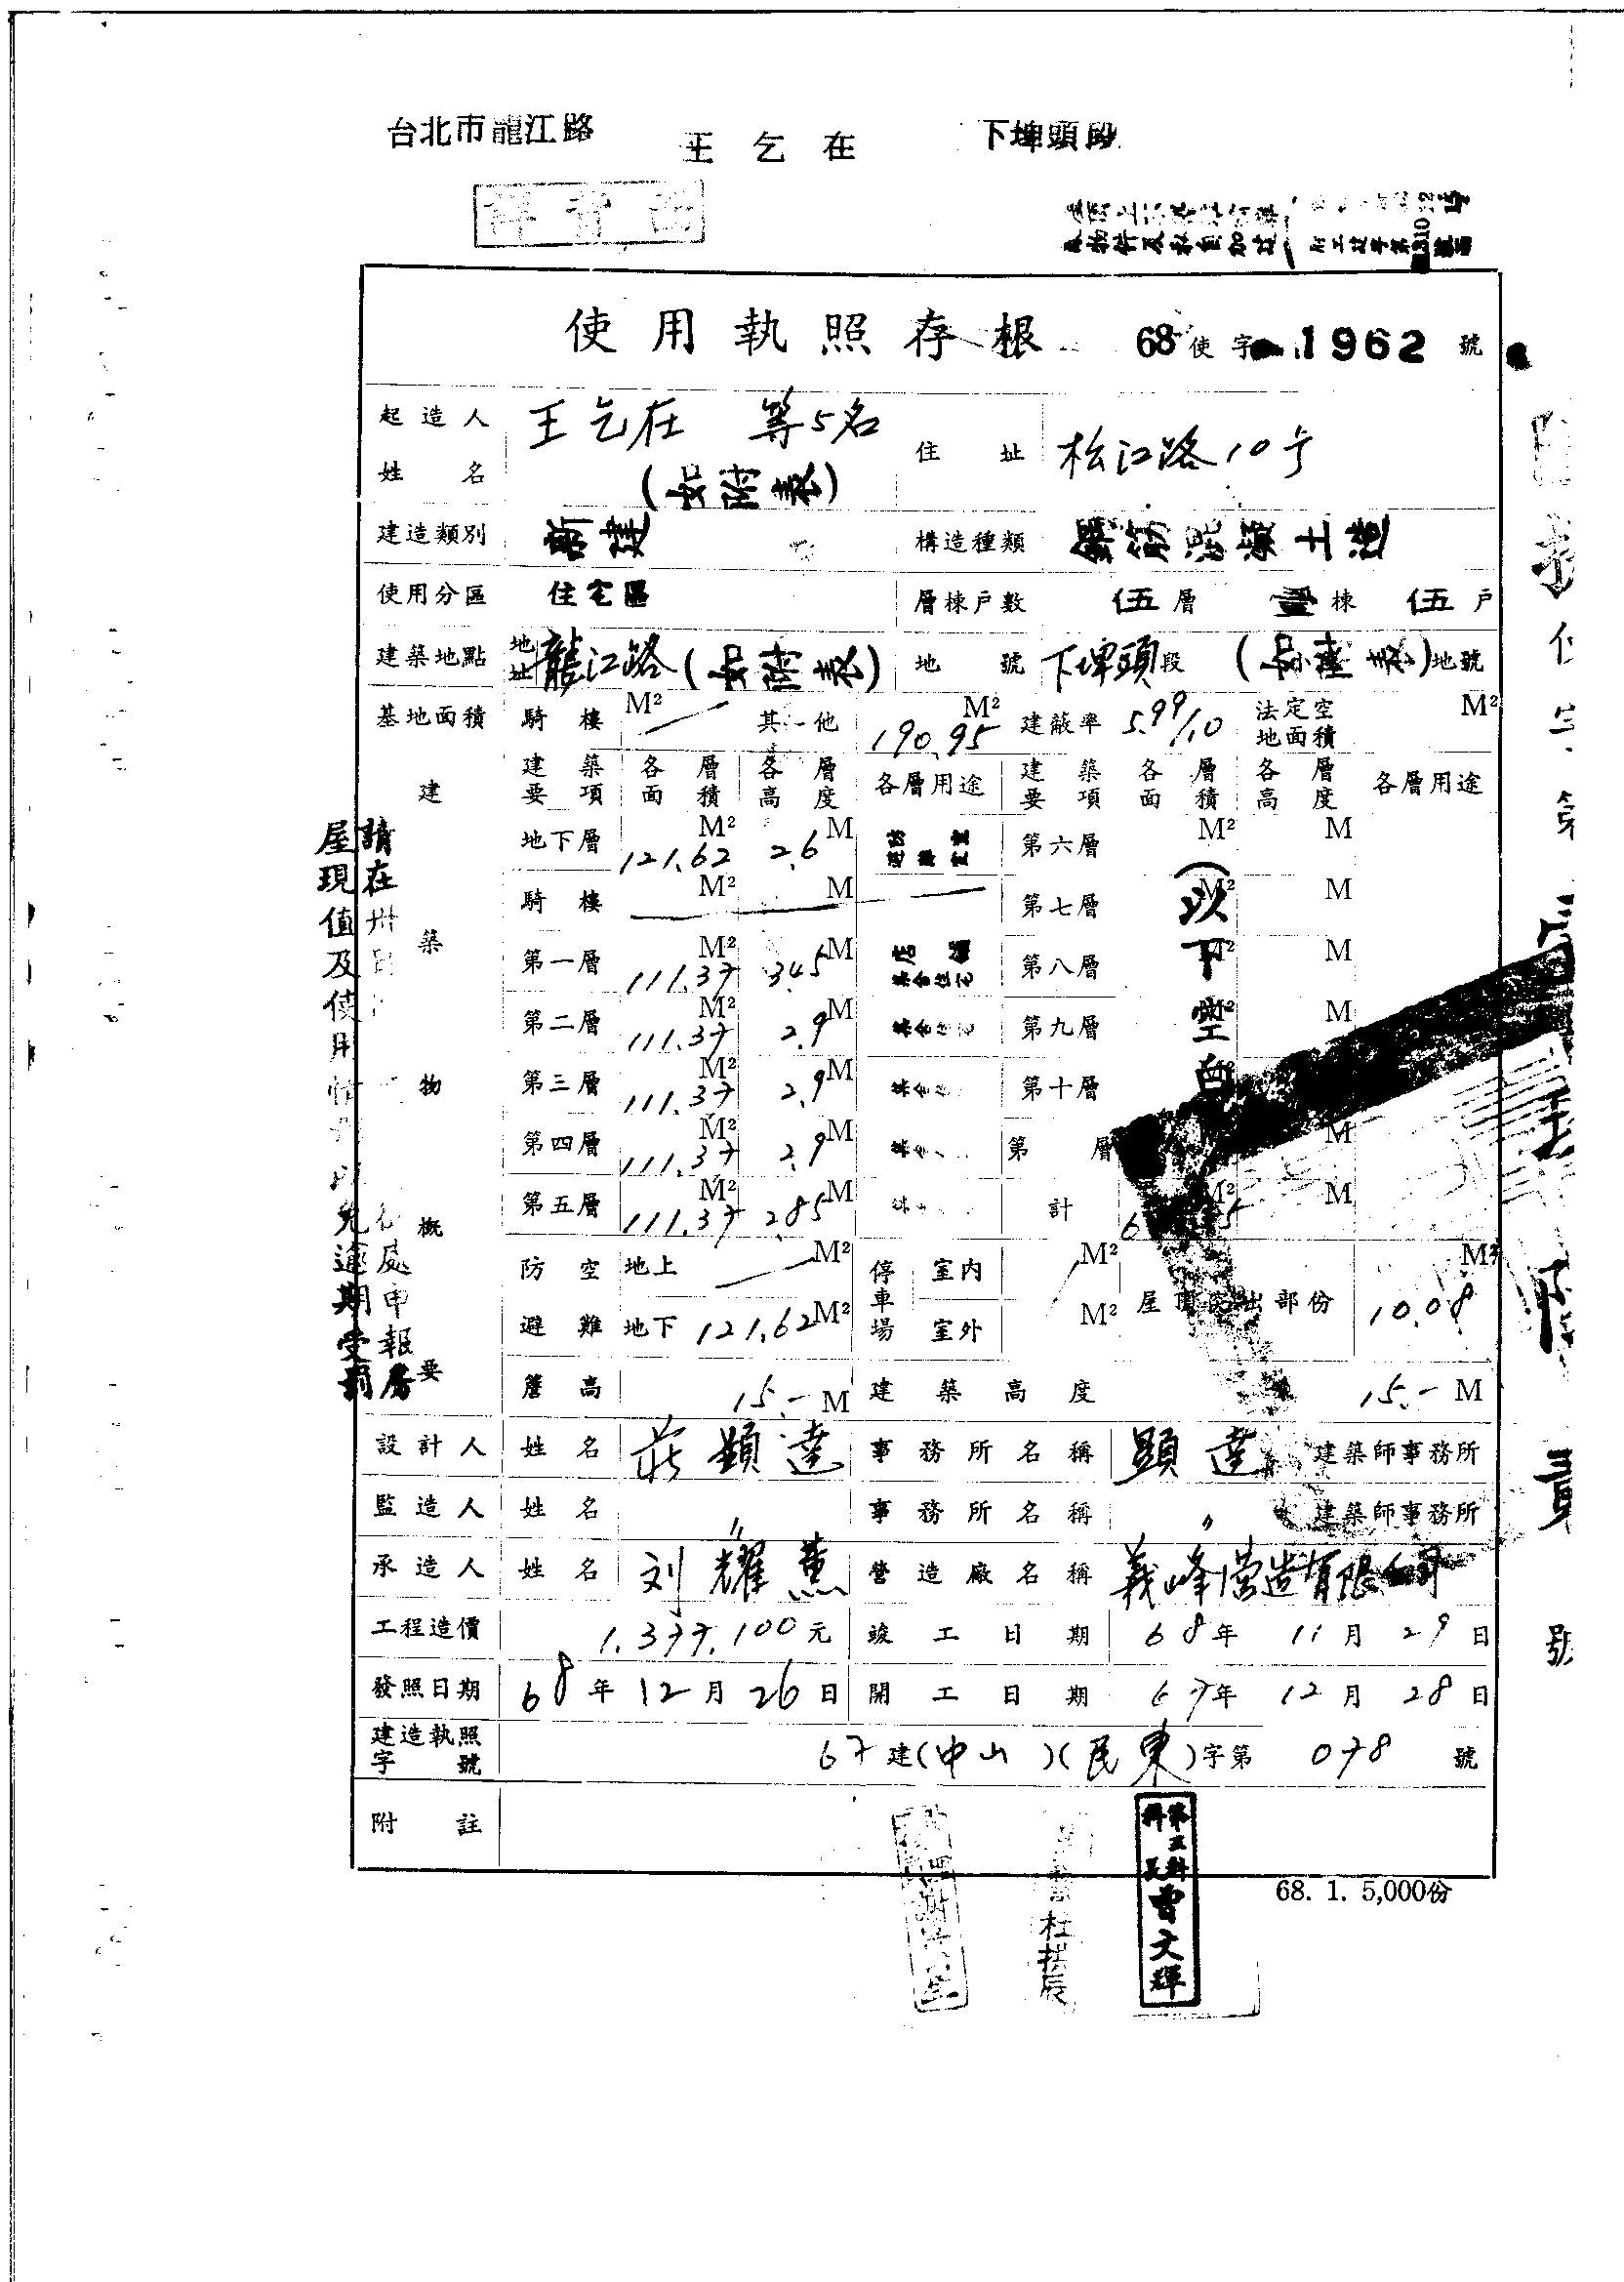 台北市龍江路 王乞在 下埤頭段
使用執照存根 68使字 1962 號
起造人姓名 王乞在 等5名 住址 松江路10号
建造類別 新建 構造種類 鋼筋混凝土造
使用分區 住宅區 層棟戶數 伍層 壹棟 伍戶
建築地點 地址 龍江路 地號 下埤頭段 地號
基地面積 騎樓 M² 其他 190.95 M² 建蔽率 5.99/10 法定空地面積 M²
建築物概要
建築要項 各層面積 各層高度 各層用途 建築要項 各層面積 各層高度 各層用途
地下層 121.62 M² 2.6 M 第六層 M² M
騎樓 M² M 第七層 M² M
第一層 111.37 M² 3.45 M 店舖 集合住宅 第八層 M² M
第二層 111.37 M² 2.9 M 第九層 M² M
第三層 111.37 M² 2.9 M 第十層 M² M
第四層 111.37 M² 2.9 M 第 層 M
第五層 111.37 M² 2.85 M 計 M² M
(以下空白
防空避難 地上 M² 停車場 室內 M² 屋頂突出部份 10.08 M²
地下 121.62 M² 室外 M²
簷高 15.- M 建築高度 15.- M
設計人 姓名 莊顯達 事務所名稱 顯達 建築師事務所
監造人 姓名 〃 事務所名稱 〃 建築師事務所
承造人 姓名 刘耀薰 營造廠名稱 義峰營造有限公司
工程造價 1.377.100元 竣工日期 68年 11月 29日
發照日期 68年12月26日 開工日期 67年 12月 28日
建造執照字號 67建(中山)(民東)字第 078 號
附註
第三科科長 曹文輝
68. 1. 5,000份